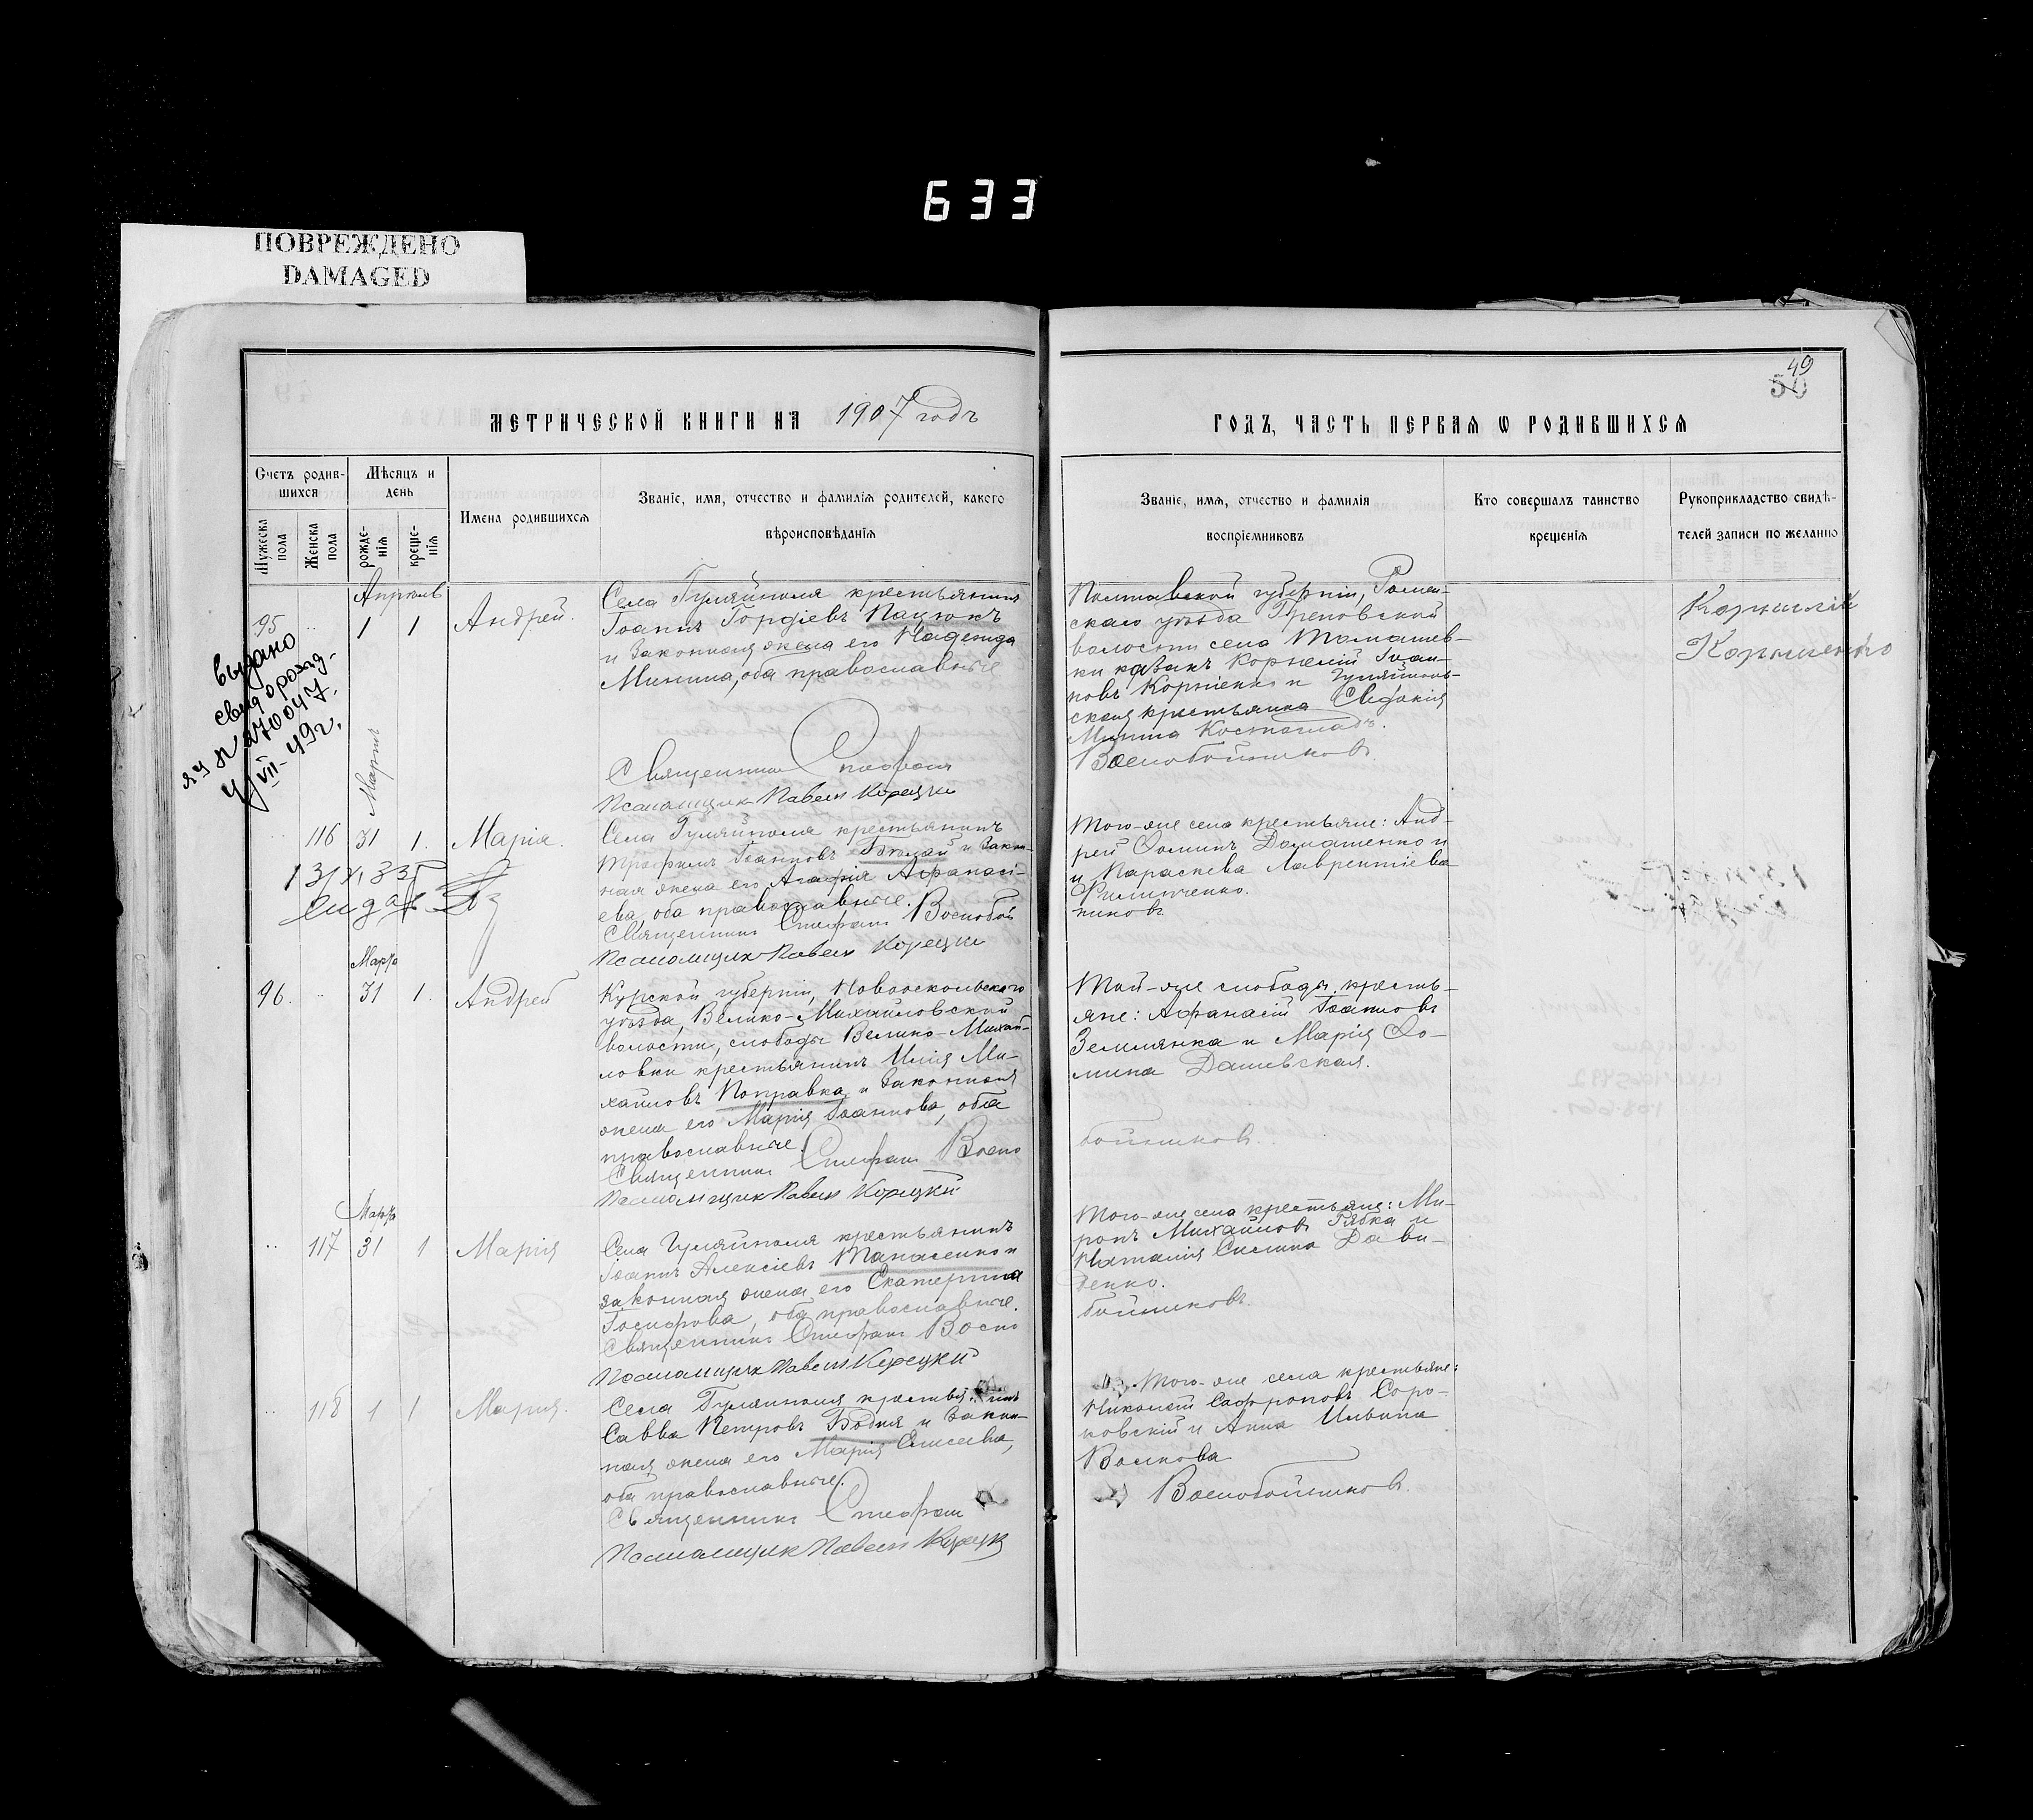 633
ПОВРЕЖДЕНО
DAMAGED
49
50
МЕТРИЧЕСКОЙ КНИГИ НА 1907 годъ
ГОДЪ, ЧАСТЬ ПЕРВАЯ Ѡ РОДИВШИХСЯ
Счетъ родив-
шихся
Мѣсяцъ и
день
Мужеска
пола
Женска
пола
рожде-
нія
креще-
нія
Имена родившихся
Званіе, имя, отчество и фамилія родителей, какого
вѣроисповѣданія
Званіе, имя, отчество и фамилія
воспріемниковъ
Кто совершалъ таинство
крещенія
Рукоприкладство свидѣ-
телей записи по желанію
Апрель
95 1 1 Андрей.
выдано
свид о рожд.
яч № 270047.
VII-49г.
Села Гуляйполя крестьянинъ
Іоаннъ Гордіевъ Пацюкъ
и законная жена его Надежда
Минина, оба православные
Священникъ Стефанъ
Псаломщик Павелъ Корецкій
Полтавской губерніи, Ромен-
скаго уѣзда
волости села Томашев-
ки казакъ Корнелій Іоан-
новъ Корніенко и Гуляйполь-
ская крестьянка
Воскобойниковъ
Корнилій
Корниенко
Мартъ
116 31 1. Марія.
Села Гуляйполя крестьянинъ
Трофимъ Іоанновъ и закон-
ная жена его Агафія Афанасі-
ева, оба православные.
Священникъ Стефанъ Воскобой
Псаломщик Павелъ Корецкій
Того-же села крестьяне: Анд-
рей Ѳоминъ Домашенко и
и Параскева Лаврентіева
Филипченко.
никовъ
Мартъ
96. 31 1. Андрей
Курской губерніи, Новооскольскаго
уѣзда, Велико-Михайловской
волости, слободы Велико-Михай-
ловки крестьянинъ Илія Ми-
хаиловъ Поправка и законная
жена его Марія Іоаннова, оба
православные.
Священникъ Стефанъ Воско
Псаломщик Павелъ Корецкій
Той-же слободы кресть-
яне: Афанасій Іоанновъ
Землянка и Марія Ѳо-
мина Дашевская.
бойниковъ.
Мартъ
117 31 1 Марія
Села Гуляйполя крестьянинъ
Іоаннъ Алексіевъ Танасенко и
законная жена его Екатерина
Іосифова, оба православные.
Священникъ Стефанъ Воско
Псаломщик Павелъ Корецкій
Того-же села крестьяне: Ми-
ронъ Михайловъ Рябка и
Наталія Силина Дави-
денко.
бойниковъ.
118 1 1 Марія.
Села Гуляйполя крестьянинъ
Савва Петровъ Бодня и закон-
ная жена его Марія Елисеева,
оба православные.
Священникъ Стефанъ
Псаломщик Павелъ Корецкій
Того-же села крестьяне:
Николай Сафроновъ Соро-
ковскій и Анна Ильина
Волкова
Воскобойниковъ.